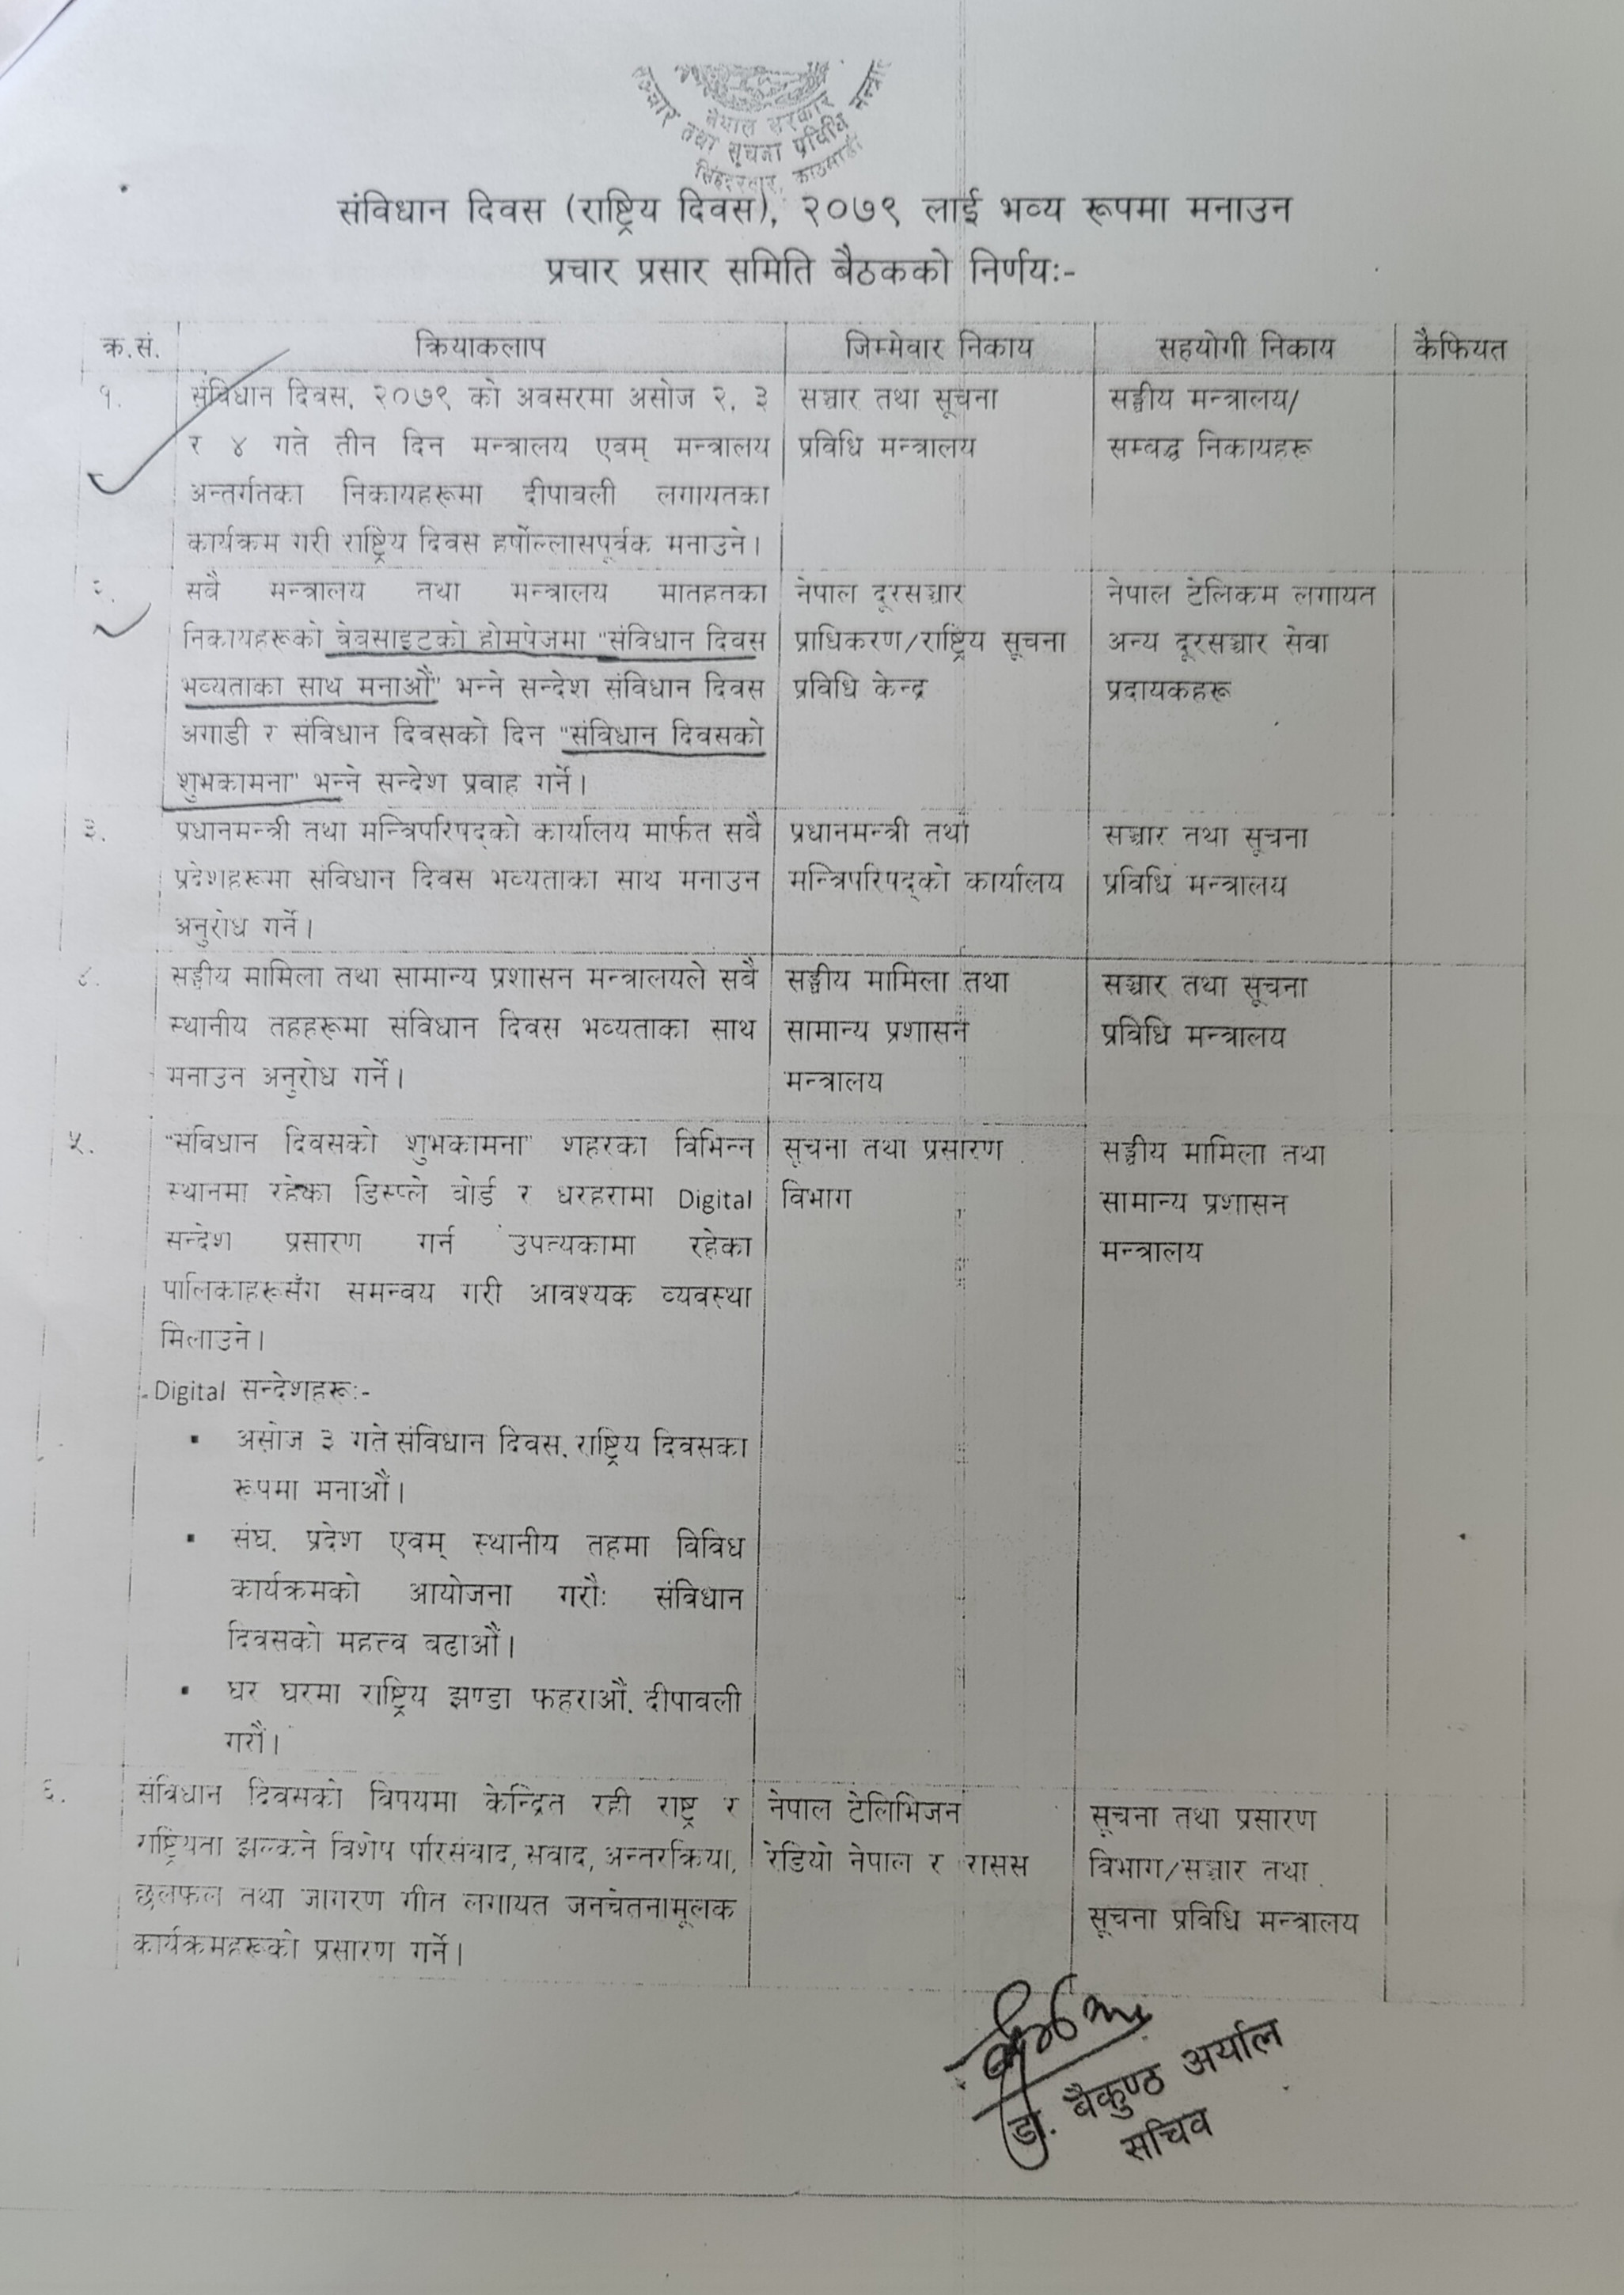 नेपाल सरकार
सञ्चार तथा सूचना प्रविधि मन्त्रालय
सिंहदरबार, काठमाडौं
संविधान दिवस (राष्ट्रिय दिवस), २०७९ लाई भव्य रूपमा मनाउन
प्रचार प्रसार समिति बैठकको निर्णयः-
क्र.सं. क्रियाकलाप जिम्मेवार निकाय सहयोगी निकाय कैफियत
१. संविधान दिवस, २०७९ को अवसरमा असोज २, ३ सञ्चार तथा सूचना सङ्घीय मन्त्रालय/
र ४ गते तीन दिन मन्त्रालय एवम् मन्त्रालय प्रविधि मन्त्रालय सम्वद्ध निकायहरू
अन्तर्गतका निकायहरूमा दीपावली लगायतका
कार्यक्रम गरी राष्ट्रिय दिवस हर्षोल्लासपूर्वक मनाउने।
२. सवै मन्त्रालय तथा मन्त्रालय मातहतका नेपाल दूरसञ्चार नेपाल टेलिकम लगायत
निकायहरूको वेवसाइटको होमपेजमा "संविधान दिवस प्राधिकरण/राष्ट्रिय सूचना अन्य दूरसञ्चार सेवा
भव्यताका साथ मनाऔं" भन्ने सन्देश संविधान दिवस प्रविधि केन्द्र प्रदायकहरू
अगाडी र संविधान दिवसको दिन "संविधान दिवसको
शुभकामना" भन्ने सन्देश प्रवाह गर्ने।
३. प्रधानमन्त्री तथा मन्त्रिपरिषद्को कार्यालय मार्फत सवै प्रधानमन्त्री तथा सञ्चार तथा सूचना
प्रदेशहरूमा संविधान दिवस भव्यताका साथ मनाउन मन्त्रिपरिषद्को कार्यालय प्रविधि मन्त्रालय
अनुरोध गर्ने।
४. सङ्घीय मामिला तथा सामान्य प्रशासन मन्त्रालयले सवै सङ्घीय मामिला तथा सञ्चार तथा सूचना
स्थानीय तहहरूमा संविधान दिवस भव्यताका साथ सामान्य प्रशासन प्रविधि मन्त्रालय
मनाउन अनुरोध गर्ने। मन्त्रालय
५. "संविधान दिवसको शुभकामना" शहरका विभिन्न सूचना तथा प्रसारण सङ्घीय मामिला तथा
स्थानमा रहेका डिस्प्ले वोर्ड र धरहरामा Digital विभाग सामान्य प्रशासन
सन्देश प्रसारण गर्न उपत्यकामा रहेका मन्त्रालय
पालिकाहरूसँग समन्वय गरी आवश्यक व्यवस्था
मिलाउने।
Digital सन्देशहरू:-
▪ असोज ३ गते संविधान दिवस, राष्ट्रिय दिवसका
रूपमा मनाऔं।
▪ संघ, प्रदेश एवम् स्थानीय तहमा विविध
कार्यक्रमको आयोजना गरौः संविधान
दिवसको महत्त्व बढाऔं।
▪ घर घरमा राष्ट्रिय झण्डा फहराऔं, दीपावली
गरौं।
६. संविधान दिवसको विषयमा केन्द्रित रही राष्ट्र र नेपाल टेलिभिजन सूचना तथा प्रसारण
राष्ट्रियता झल्कने विशेष परिसंवाद, संवाद, अन्तरक्रिया, रेडियो नेपाल र रासस विभाग/सञ्चार तथा
छलफल तथा जागरण गीत लगायत जनचेतनामूलक सूचना प्रविधि मन्त्रालय
कार्यक्रमहरूको प्रसारण गर्ने।
डा. बैकुण्ठ अर्याल
सचिव